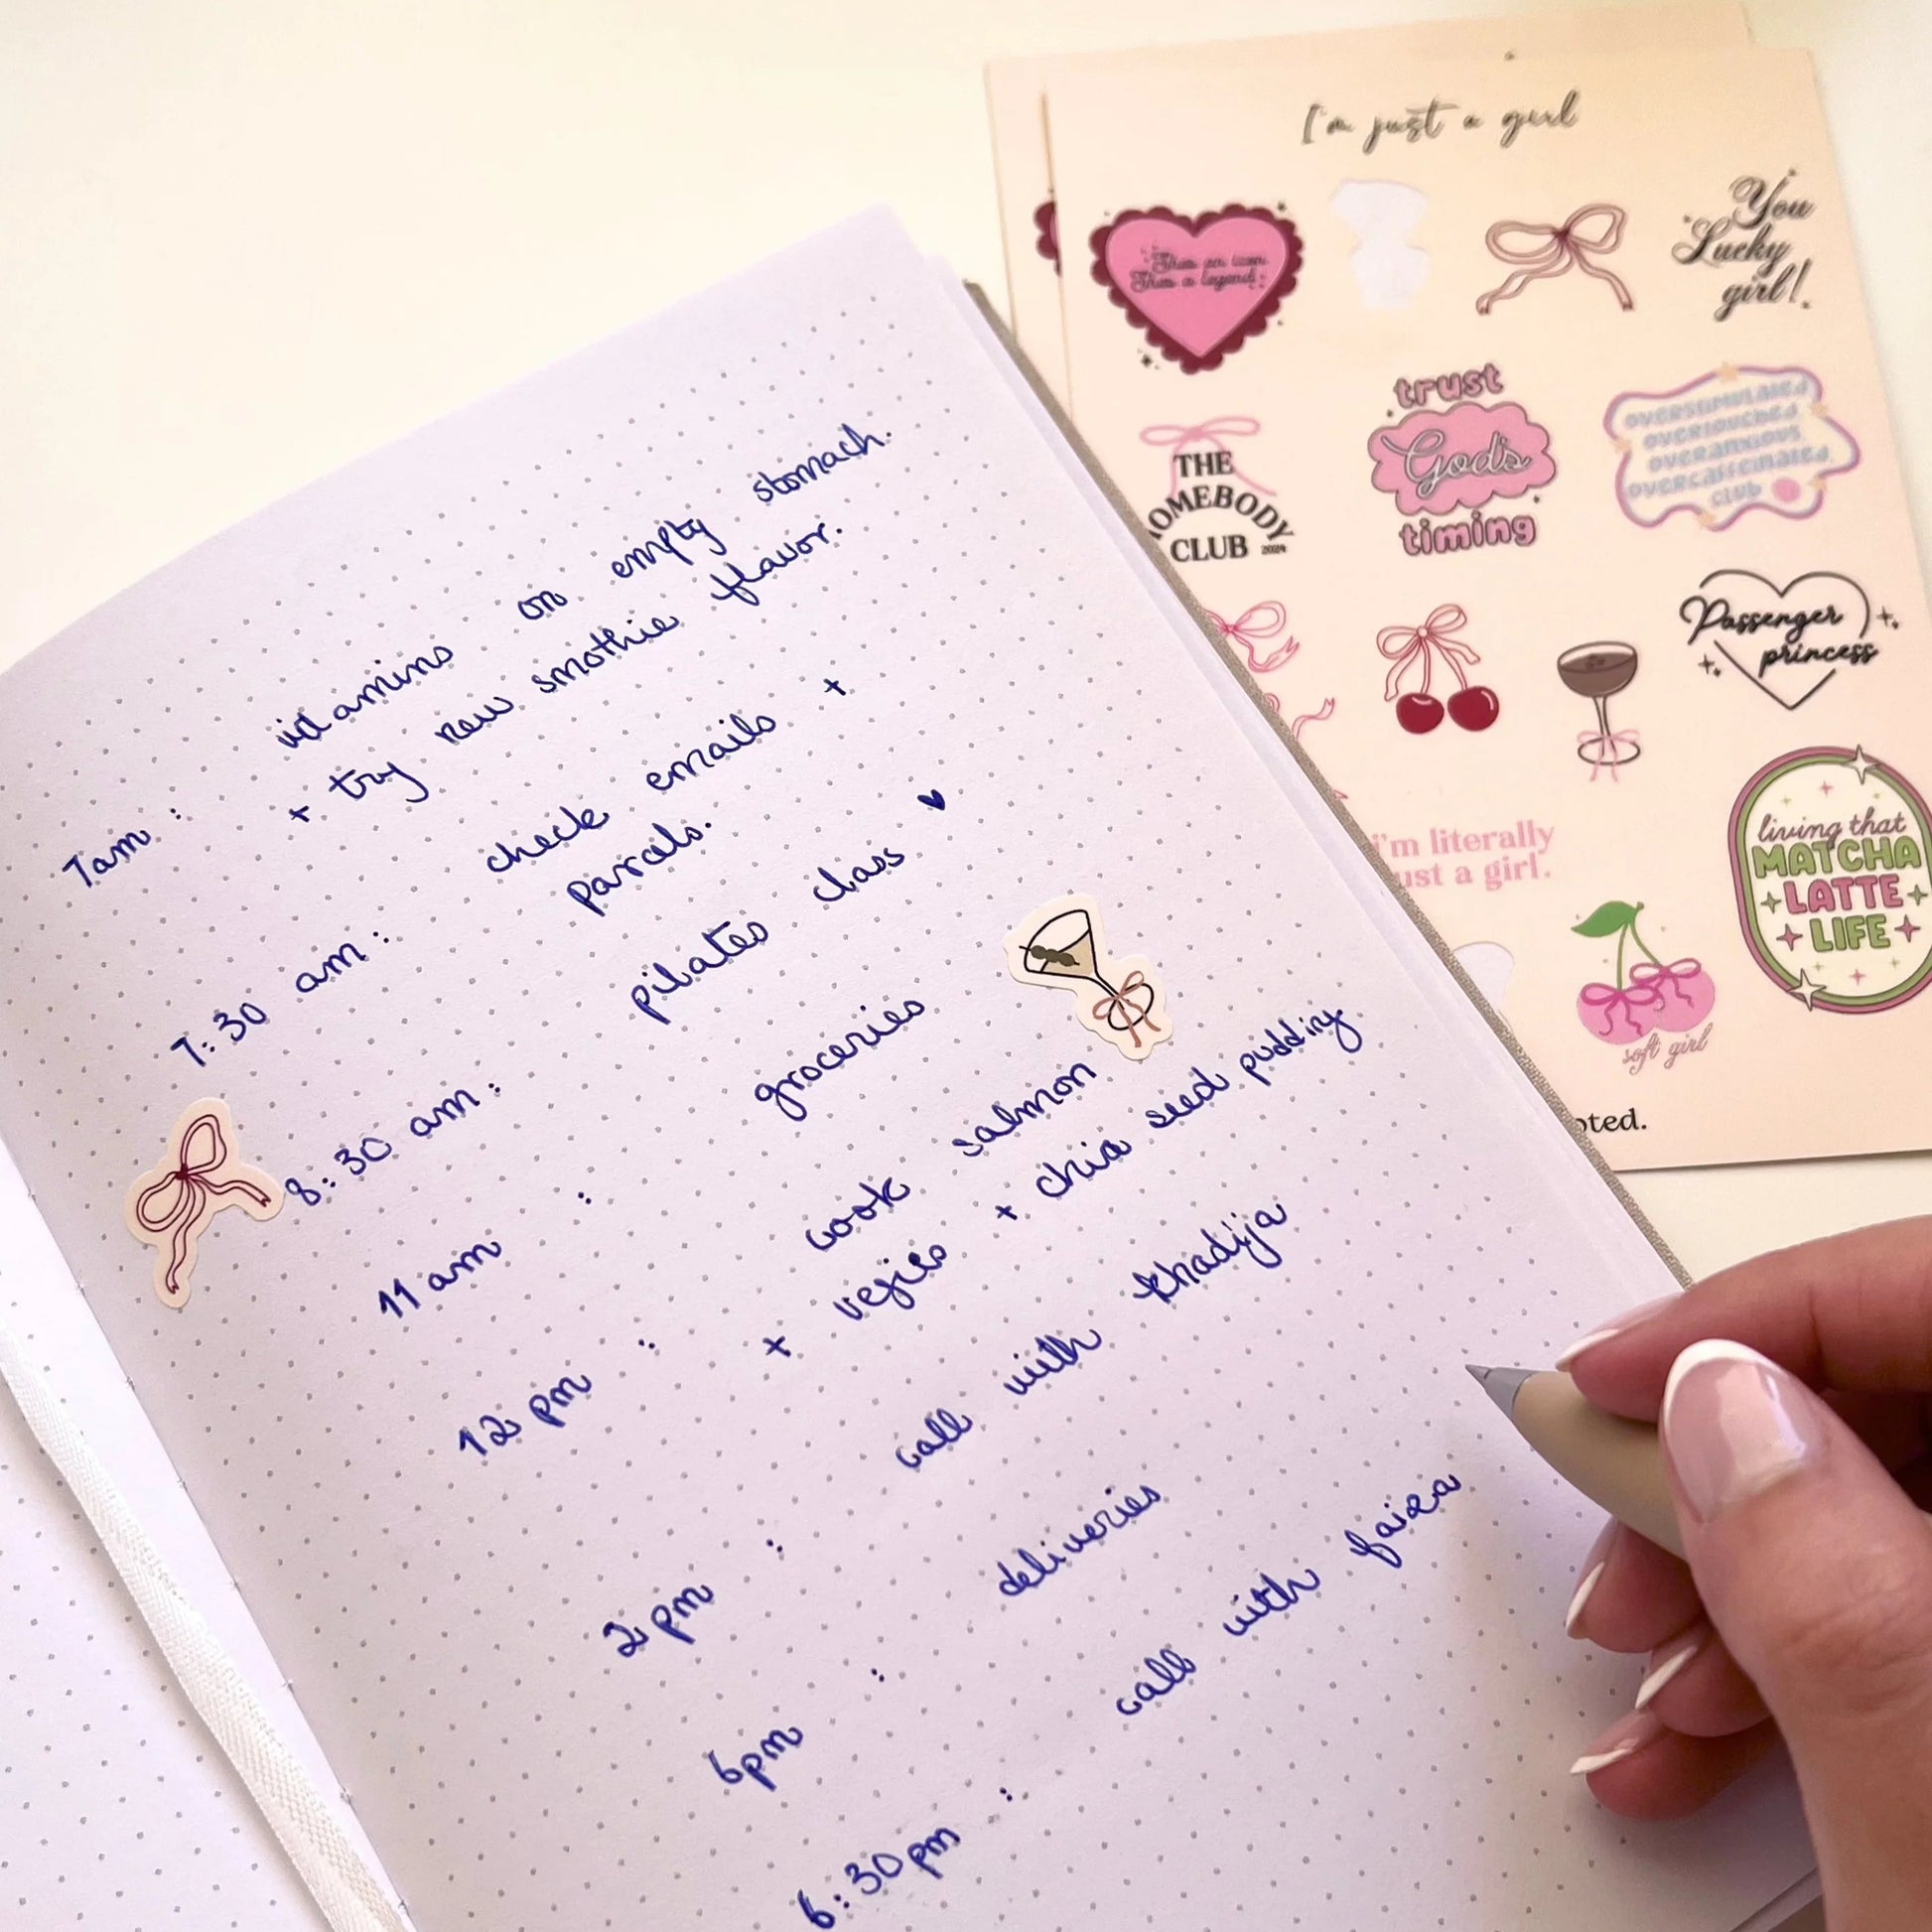 7am : vitamins on empty stomach.
+ try new smothie flavor.
7:30 am : check emails +
parcels.
8:30 am : pilates class ♥
11 am : groceries
12 pm : cook salmon
+ vegies + chia seed pudding
2 pm : call with khadija
6pm : deliveries
6:30pm : call with faiza
I'm just a girl
She's an icon
She's a legend
You
Lucky
girl!
THE
HOMEBODY
CLUB 2024
trust
God's
timing
OVERSTIMULATED
OVERTOUCHED
OVERANXIOUS
OVERCAFFEINATED
CLUB
Passenger
princess
i'm literally
just a girl.
living that
MATCHA
LATTE
LIFE
soft girl
oted.